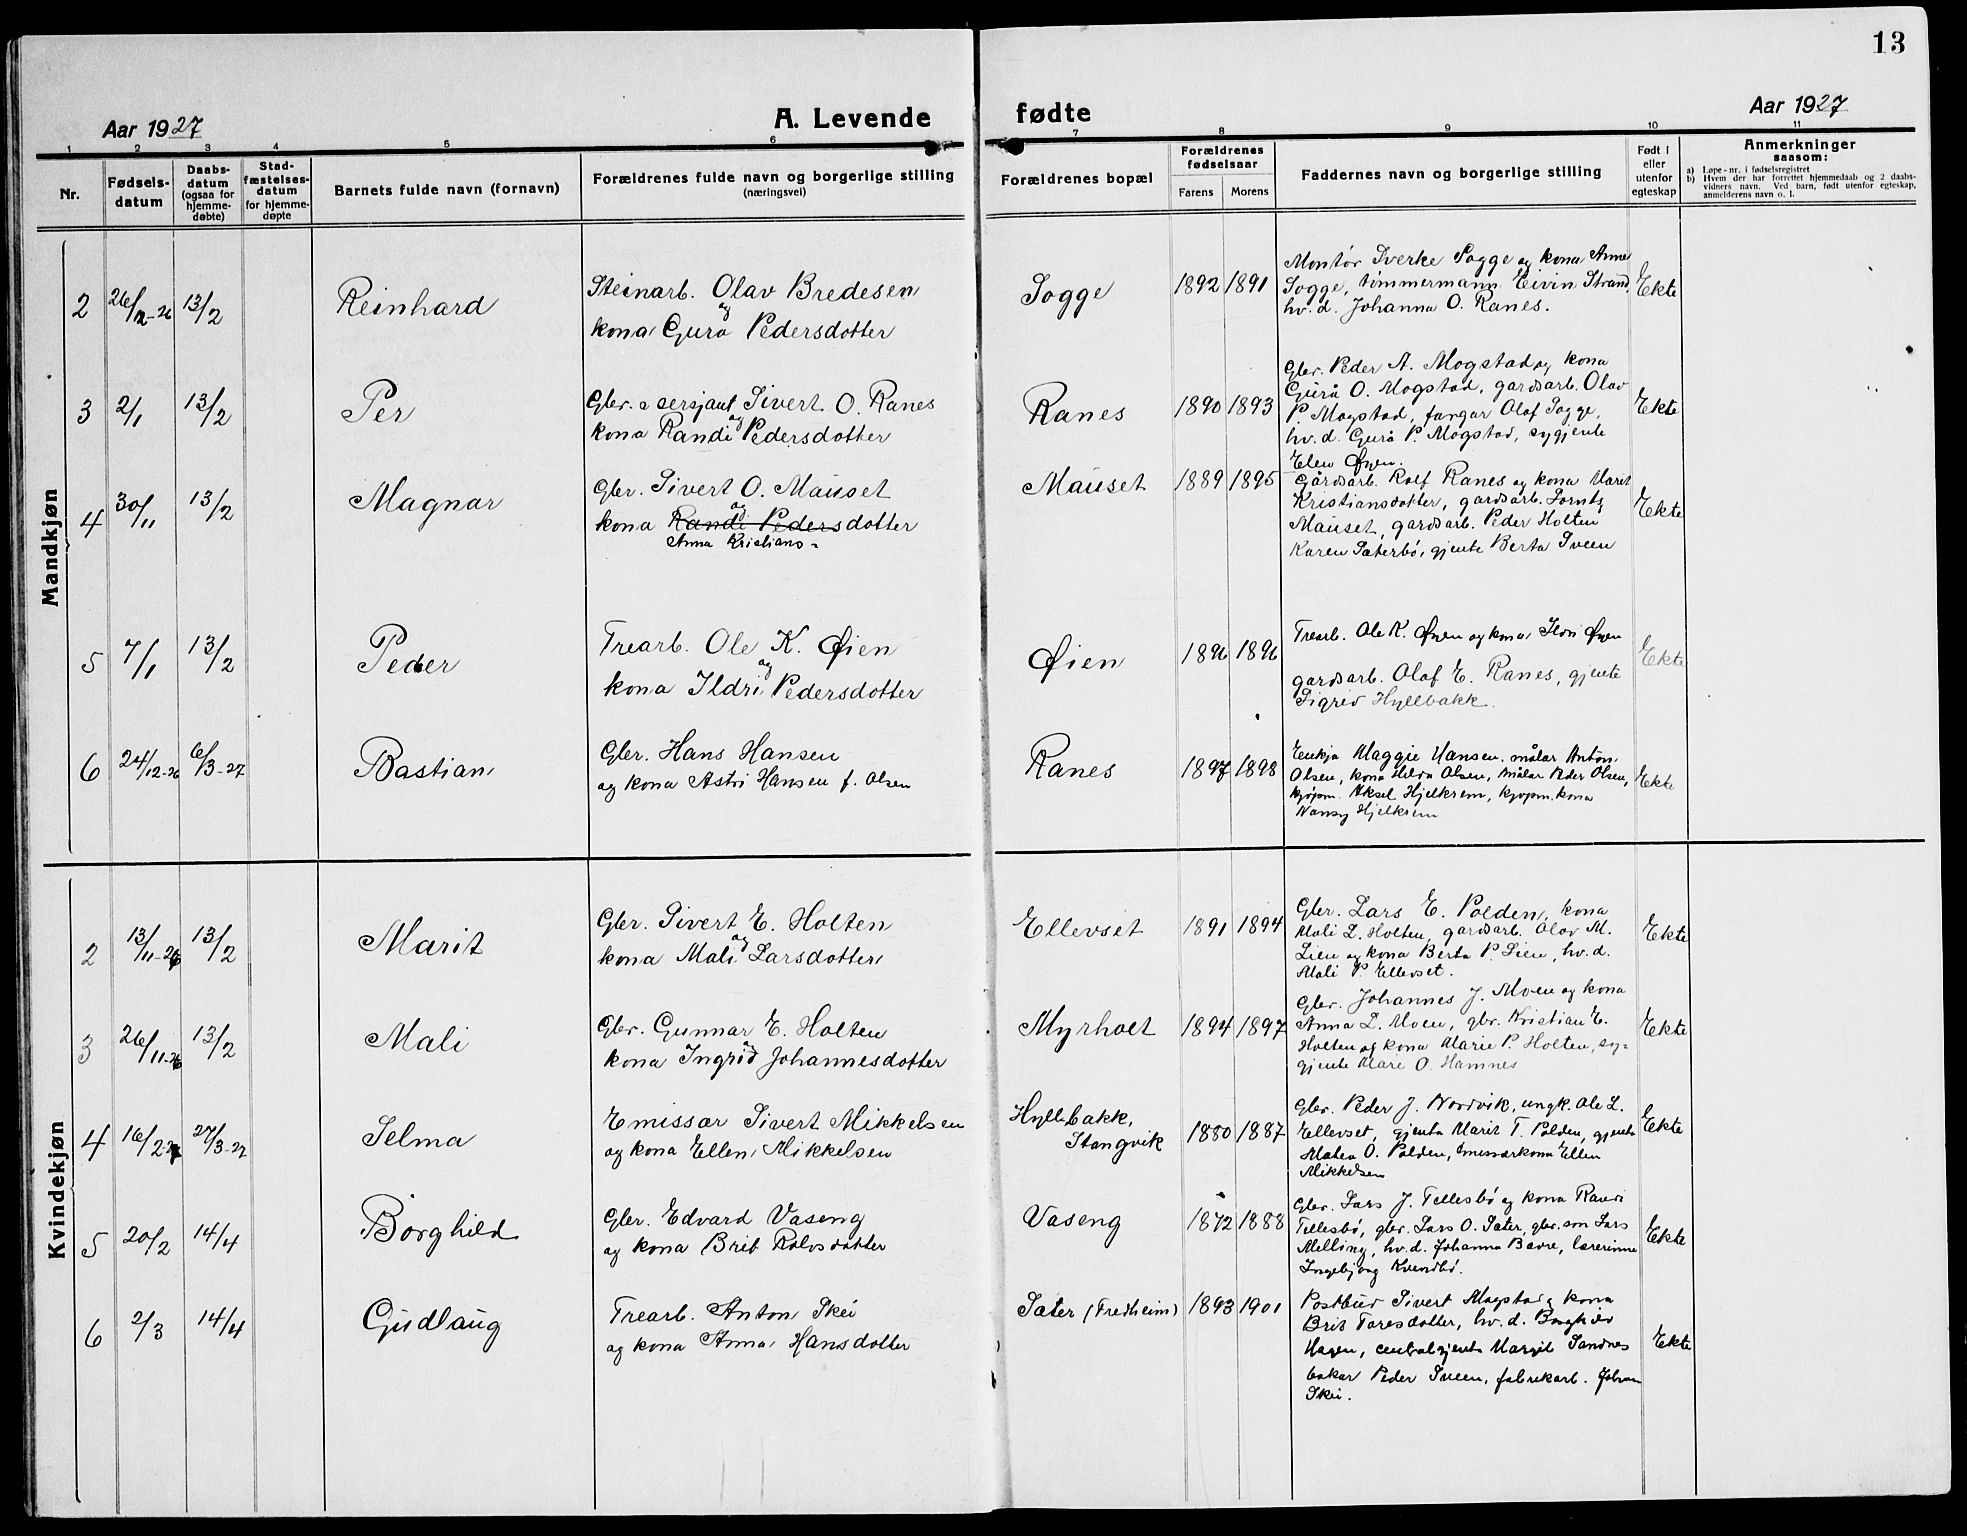 13
Aar 1927
A. Levende
fødte
Aar 1927
1 2 3 4 5 6 7 8 9 10 11
Nr.
Fødsels-
datum
Daabs-
datum
(ogsaa for
hjemme-
døbte)
Stad-
fæstelses-
datum
for hjemme-
døpte
Barnets fulde navn (fornavn)
Forældrenes fulde navn og borgerlige stilling
(næringsvei)
Forældrenes bopæl
Forældrenes
fødselsaar
Farens
Morens
Faddernes navn og borgerlige stilling
Født i
eller
utenfor
egteskap
Anmerkninger
saasom:
a) Løpe-nr. i fødselsregistret
b) Hvem der har forrettet hjemmedaab og 2 daabs-
vidners navn. Ved barn, født utenfor egteskap,
anmelderens navn o. l.
Mandkjøn
2 26/12-26 13/2 Reinhard
Steinarb. Olav Bredesen
og
kona Gura Pedersdotter
Sogge 1892 1891
Montør Sverke Sogge og kona Anne
Sogge, tømmermann Eivin Strand,
hv. d. Johanna O. Ranes.
Ekte
3 2/1 13/2 Per
Gbr. a sersjant Sivert O. Ranes
og
kona Randi Pedersdotter
Ranes 1890 1893
Gbr. Peder A. Mogstad og kona
Gurå O. Mogstad, gardsarb. Olav
P. Mogstad, fangar Olaf Sogge,
hv. d. Gurå P. Mogstad, sygjente
Elen Øyen.
Ekte
4 30/11 13/2 Magnar
Gbr. Sivert O. Mauset
og
kona Randi Pedersdotter
Anna Kristians-
Mauset 1889 1895
Gårdsarb. Rolf Ranes og kona Marit
Kristiansdotter, gardsarb.
Mauset, gardsarb. Peder Holten
Karen Sæterbø, gjente Berta Sveen
Ekte
5 7/1 13/2 Peder
Trearb. Ole K. Øien
og
kona Ildri Pedersdotter
Øien 1896 1896
Trearb. Ole K. Øyen og kona Ildri Øyen
gardsarb. Olaf E. Ranes, gjente
Sigrid Hyllbakk.
Ekte
6 24/12-26 6/3-27 Bastian
Gbr. Hans Hansen
og kona Astri Hansen f. Olsen
Ranes 1897 1898
Enkja Maggie Hansen, målar Anton
Olsen, kona Hilda Olsen, målar Peder Olsen,
kjøpm. Aksel Hjelkrem, kjøpm. kona
Nansy Hjelkrem
Ekte
Kvindekjøn
2 13/11-26 13/2 Marit
Gbr. Sivert E. Holten
og
kona Mali Larsdotter
Ellevset 1891 1894
Gbr. Lars E. Polden, kona
Mali L. Holten, gardsarb. Olav M.
Lien og kona Berta P. Lien, hv. d.
Mali P. Ellevset.
Ekte
3 26/11-26 13/2 Mali
Gbr. Gunnar E. Holten
og
kona Ingrid Johannesdotter
Myrholt 1894 1897
Gbr. Johannes J. Moen og kona
Anna L. Moen, gbr. Kristian E.
Holten og kona Marie P. Holten, sy-
gjente Mari O. Hamnes
Ekte
4 16/2-27 27/3-27 Selma
Emissær Sivert Mikkelsen
og kona Ellen Mikkelsen
Hyllbakk,
Stangvik
1880 1887
Gbr. Peder J. Nordvik, ungk. Ole L.
Ellevset, gjenta Marit T. Polden, gjenta
Malen O. Polden, emissærkona Ellen
Mikkelsen
Ekte
5 20/2 14/4 Borghild
Gbr. Edvard Vaseng
og kona Brit Rolvsdotter
Vaseng 1872 1888
Gbr. Lars J. Tellesbø og kona Randi
Tellesbø, gbr. Lars O. Sæter, gbr. son Lars
Melling, hv. d. Johanna Bævre, lærerinne
Ingebjørg Kvendbø.
Ekte
6 2/3 14/4 Gudlaug
Trearb. Anton Skei
og kona Anna Hansdotter
Sæter (Fredheim) 1893 1901
Postbud Sivert Mogstad og kona
Brit Toresdotter, hv. d. Borghild
Hagen, centralgjenta Margit Sandnes
bakar Peder Sveen, fabrekarb. Johan
Skei.
Ekte